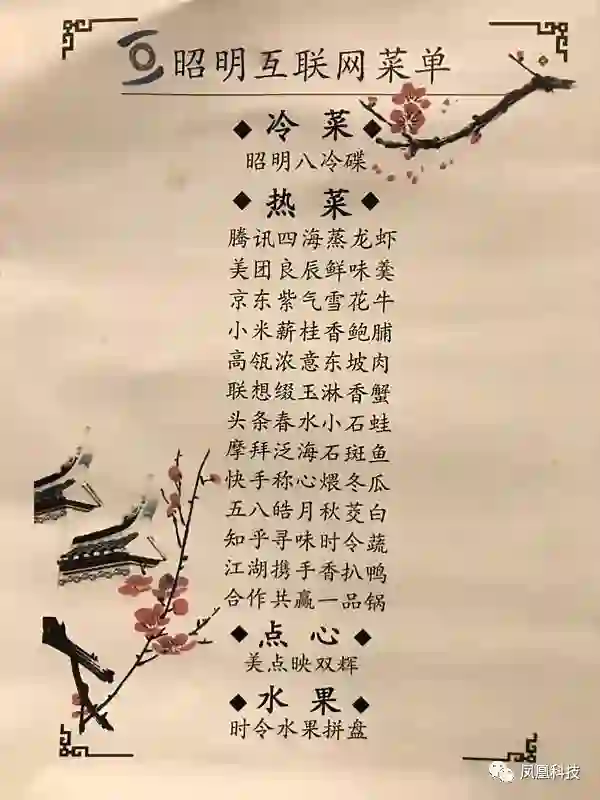 昭明互联网菜单
冷菜
昭明八冷碟
热菜
腾讯四海蒸龙虾
美团良辰鲜味羹
京东紫气雪花牛
小米薪桂香鲍脯
高瓴浓意东坡肉
联想缀玉淋香蟹
头条春水小石蛙
摩拜泛海石斑鱼
快手称心煨冬瓜
五八皓月秋茭白
知乎寻味时令蔬
江湖携手香扒鸭
合作共赢一品锅
点心
美点映双辉
水果
时令水果拼盘
凤凰科技